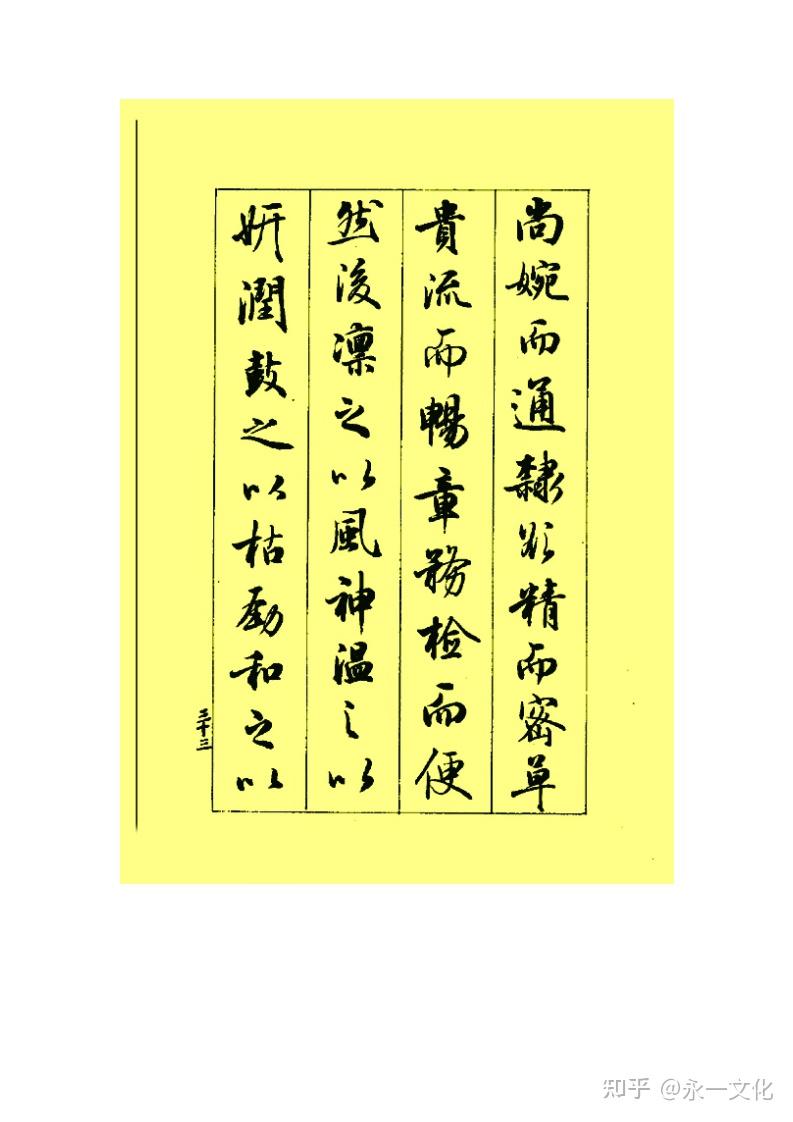 尚婉而通隸欲精而密草
貴流而暢章務檢而便
然後凜之以風神温之以
妍潤鼓之以枯勁和之以
三十三
知乎 @永一文化